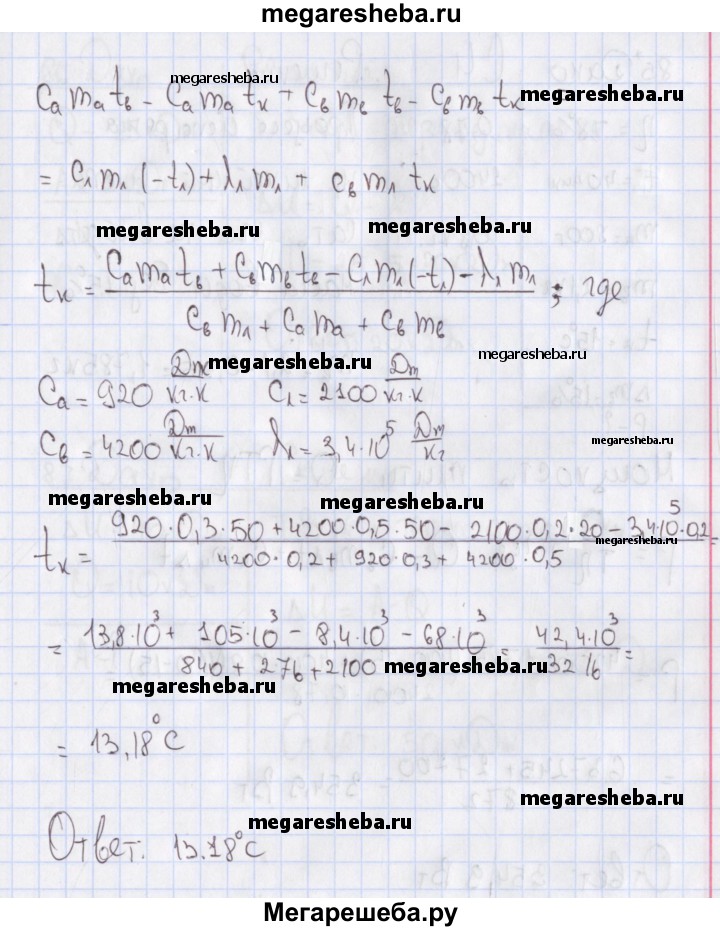 megaresheba.ru
megaresheba.ru
Cₐ mₐ t₆ - Cₐ mₐ tₖ + C₆ m₆ t₆ - C₆ m₆ tₖ megaresheba.ru
= Cл mл (-tл) + λл mл + C₆ mл tₖ
megaresheba.ru megaresheba.ru
tₖ = (Cₐ mₐ t₆ + C₆ m₆ t₆ - Cл mл (-tл) - λл mл) / (C₆ mл + Cₐ mₐ + C₆ m₆) ; где
megaresheba.ru megaresheba.ru
Cₐ = 920 Дж/кг·К Cл = 2100 Дж/кг·К
C₆ = 4200 Дж/кг·К λл = 3,4·10⁵ Дж/кг
megaresheba.ru
megaresheba.ru megaresheba.ru
tₖ = (920·0,3·50 + 4200·0,5·50 - 2100·0,2·20 - 3,4·10⁵·0,2) / (4200·0,2 + 920·0,3 + 4200·0,5) =
megaresheba.ru
= (13,8·10³ + 105·10³ - 8,4·10³ - 68·10³) / (840 + 276 + 2100) = 42,4·10³ / 3216 =
megaresheba.ru
megaresheba.ru
= 13,18°C
megaresheba.ru
megaresheba.ru
Ответ: 13.18°C
Мегарешеба.ру